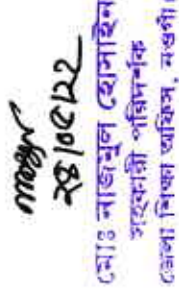 মোঃ নাজমুল হোসাইন
সহকারী পরিদর্শক
জেলা শিক্ষা অফিস, নওগাঁ।